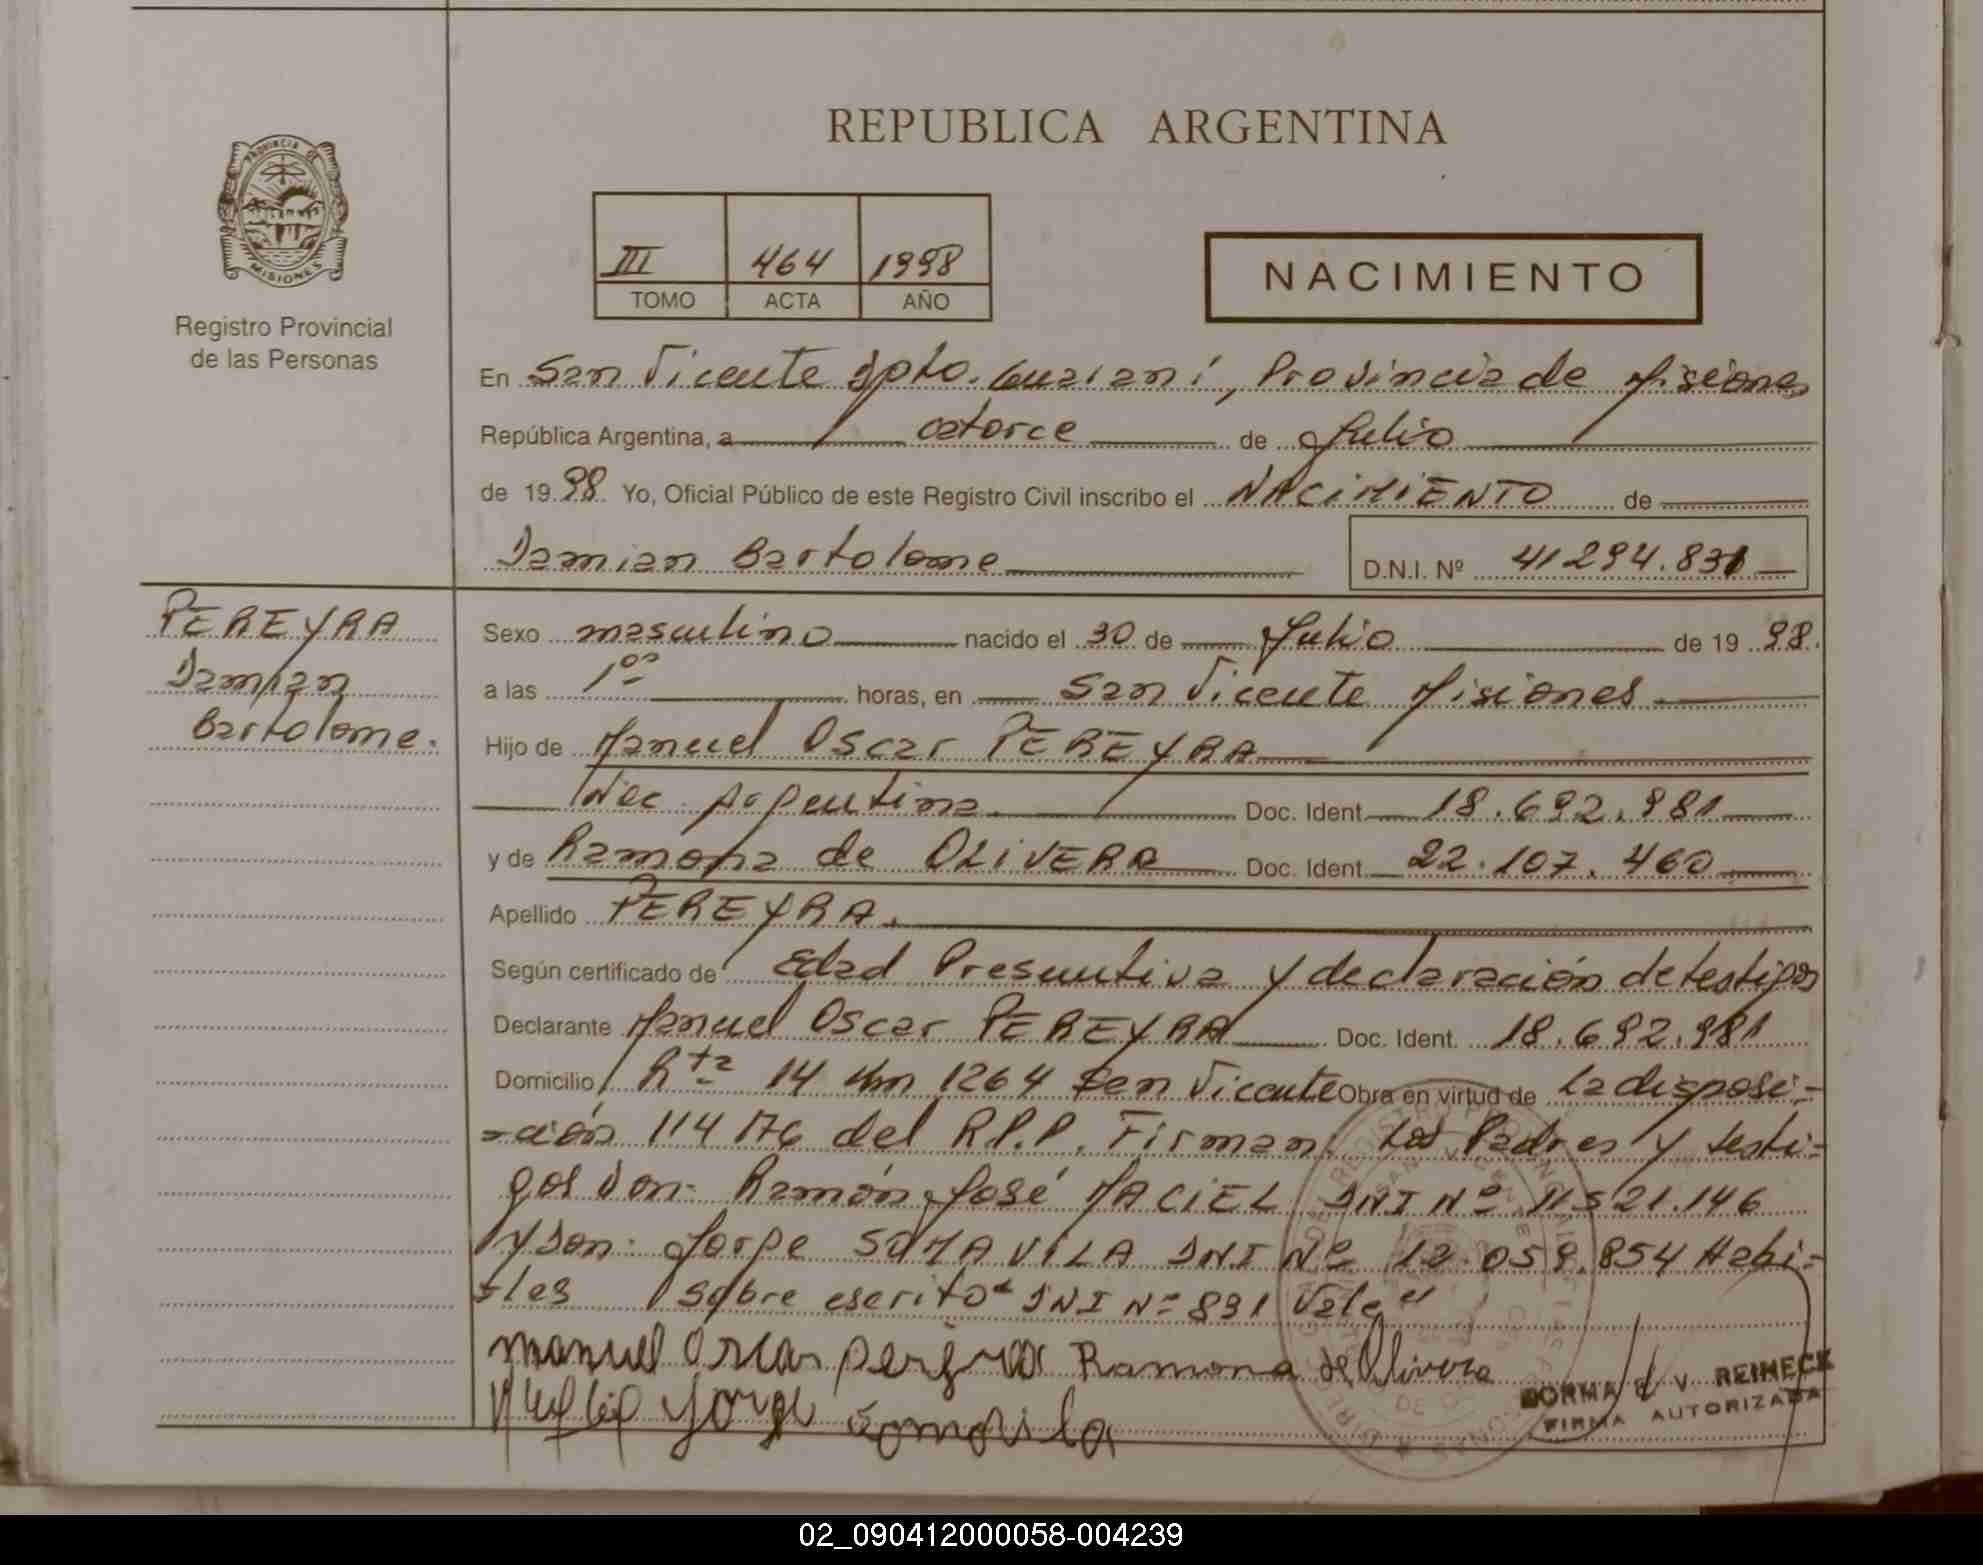 REPUBLICA ARGENTINA
PROVINCIA DE
MISIONES
Registro Provincial
de las Personas
III 464 1998
TOMO ACTA AÑO
NACIMIENTO
En San Vicente Dpto. Guaraní, Provincia de Misiones
República Argentina, a catorce de Julio
de 1998 Yo, Oficial Público de este Registro Civil inscribo el NACIMIENTO de
Damian Bartolome D.N.I. Nº 41294.831
PEREYRA
Damian
Bartolome.
Sexo masculino nacido el 30 de Julio de 1998.
a las 1⁰⁰ horas, en San Vicente Misiones
Hijo de Manuel Oscar PEREYRA
Nac. Argentina Doc. Ident. 18.692.981
y de Ramona de OLIVERA Doc. Ident. 22.107.460
Apellido PEREYRA.
Según certificado de Edad Presuntiva y declaración de testigos
Declarante Manuel Oscar PEREYRA Doc. Ident. 18.692.981
Domicilio Rta 14 Km 1264 San Vicente Obra en virtud de La disposi-
-ción 114/76 del R.P.P. Firman: Los Padres y testi-
gos Don: Ramón José MACIEL DNI Nº 11.521.146
y Don: Jorge SOMAVILA DNI Nº 12.059.854 Habi-
-les Sobre escrito" DNI Nº 831 Vale"
Manuel Oscar Pereyra Ramona de Olivera
Jorge Somavila
NORMA V. REINECK
FIRMA AUTORIZADA
02_090412000058-004239